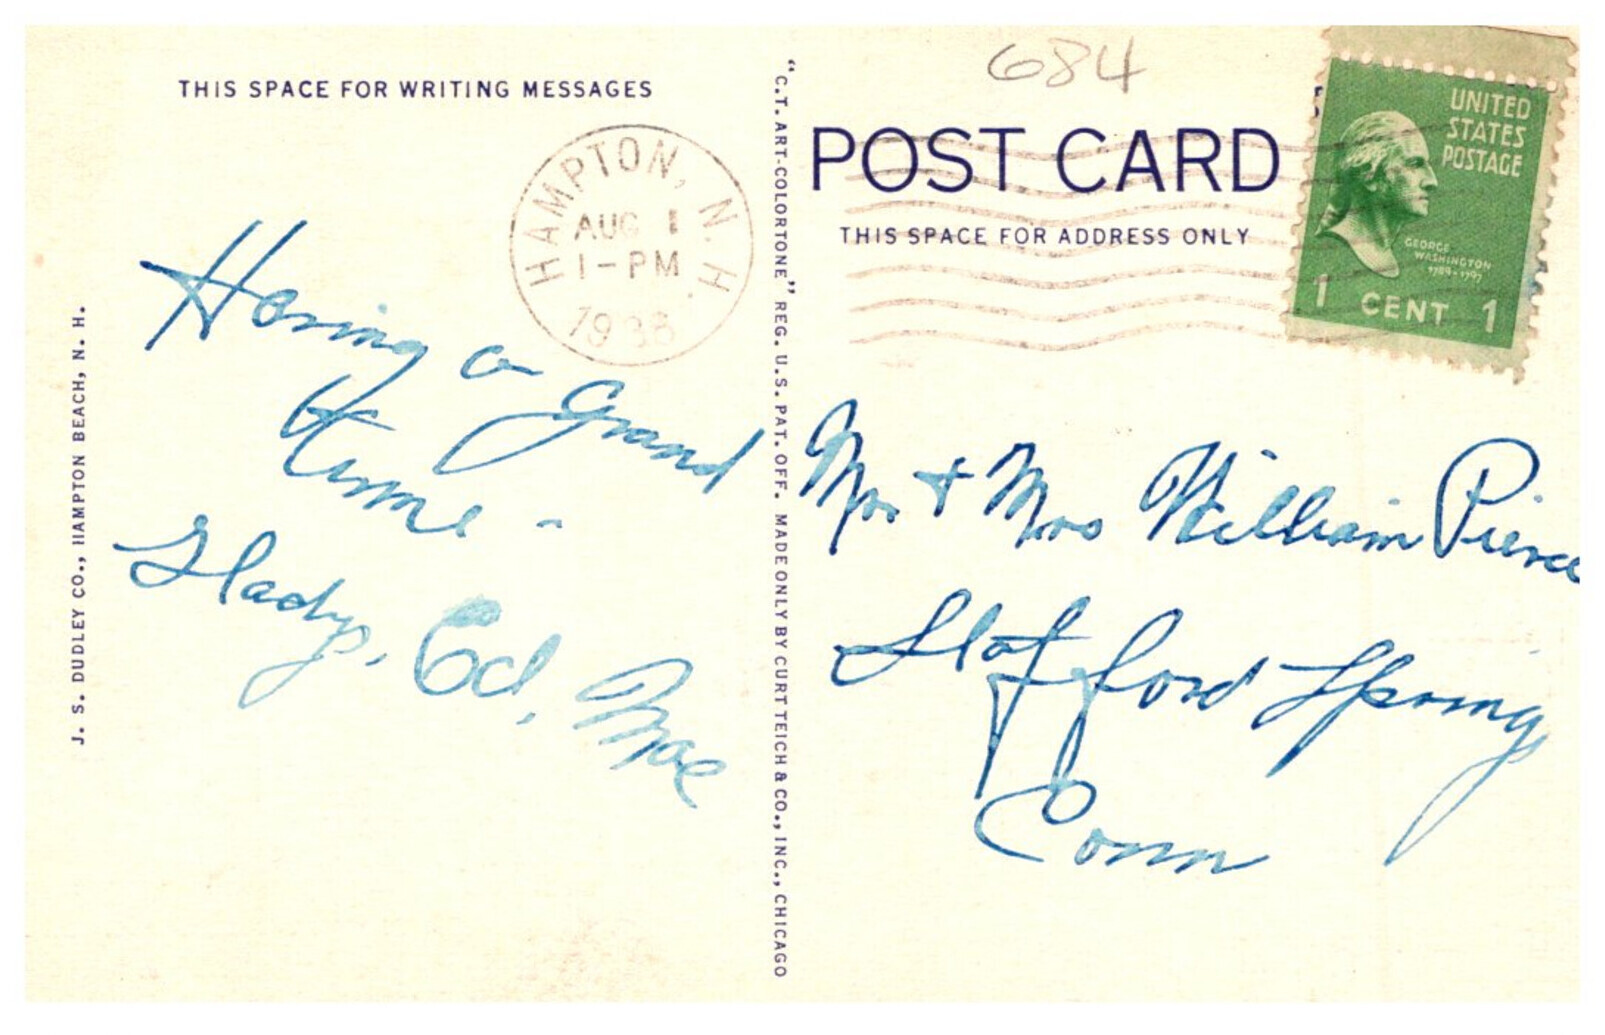 THIS SPACE FOR WRITING MESSAGES
HAMPTON, N. H.
AUG 1
1-PM
1938
Having a Grand
time -
Gladys, Ed, Mae
J. S. DUDLEY CO., HAMPTON BEACH, N. H.
"C.T. ART-COLORTONE" REG. U.S. PAT. OFF. MADE ONLY BY CURT TEICH & CO., INC., CHICAGO
684
POST CARD
THIS SPACE FOR ADDRESS ONLY
UNITED
STATES
POSTAGE
GEORGE
WASHINGTON
1789-1797
1 CENT 1
Mr + Mrs William Pierce
Stafford Spring
Conn